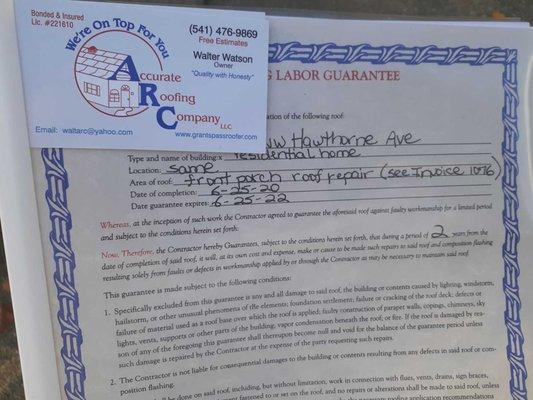 Bonded & Insured
Lic. #221610
We're On Top For You
Accurate
Roofing
Company LLC
(541) 476-9869
Free Estimates
Walter Watson
Owner
"Quality with Honesty"
Email: waltarc@yahoo.com
www.grantspassroofer.com
G LABOR GUARANTEE
ation of the following roof:
NW Hawthorne Ave
Type and name of building: residential home
Location: same
Area of roof: front porch roof repair (see Invoice 1076)
Date of completion: 6-25-20
Date guarantee expires: 6-25-22
Whereas, at the inception of such work the Contractor agreed to guarantee the aforesaid roof against faulty workmanship for a limited period
and subject to the conditions herein set forth:
Now, Therefore, the Contractor hereby Guarantees, subject to the conditions herein set forth, that during a period of 2 years from the
date of completion of said roof, it will, at its own cost and expense, make or cause to be made such repairs to said roof and composition flashing
resulting solely from faults or defects in workmanship applied by or through the Contractor as may be necessary to maintain said roof.
This guarantee is made subject to the following conditions:
1. Specifically excluded from this guarantee is any and all damage to said roof, the building or contents caused by lighting, windstorm,
hailstorm, or other unusual phenomena of the elements; foundation settlement; failure or cracking of the roof deck; defects or
failure of material used as a roof base over which the roof is applied; faulty construction of parapet walls, copings, chimneys, sky
lights, vents, supports or other parts of the building; vapor condensation beneath the roof; or fire. If the roof is damaged by rea-
son of any of the foregoing this guarantee shall thereupon become null and void for the balance of the guarantee period unless
such damage is repaired by the Contractor at the expense of the party requesting such repairs.
2. The Contractor is not liable for consequential damages to the building or contents resulting from any defects in said roof or com-
position flashing.
shall be done on said roof, including, but without limitation, work in connection with flues, vents, drains, sign braces,
ment fastened to or set on the roof, and no repairs or alterations shall be made to said roof, unless
necessary roofing application recommendations